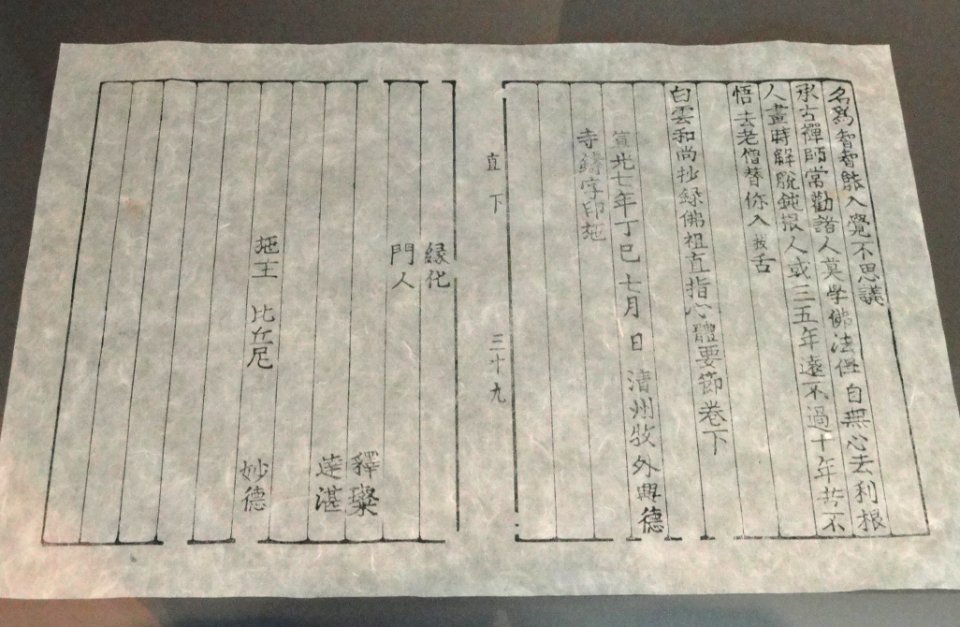 名爲智智能入覺不思議
承古禪師常勸諸人莫學佛法但自無心去利根
人盡時解脫鈍根人或三五年遠不過十年若不
悟去老僧替你入拔舌
白雲和尚抄錄佛祖直指心體要節卷下
宣光七年丁巳七月 日 清州牧外興德
寺鑄字印施
直下 三十九
緣化
門人
釋璨
達湛
施主 比丘尼 妙德